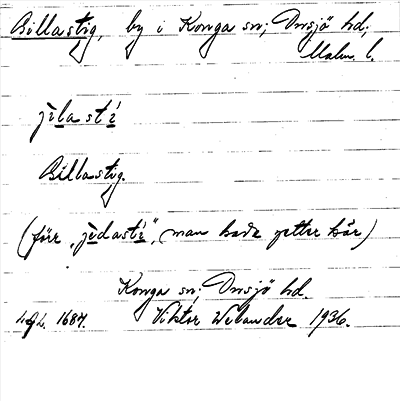 Billastig, by i Konga sn; Onsjö hd;
Malm. l.
jìlastí
Billastig.
(förr "jèdastí", man hade getter här)
Konga sn; Onsjö hd.
1687. Viktor Welander 1936.